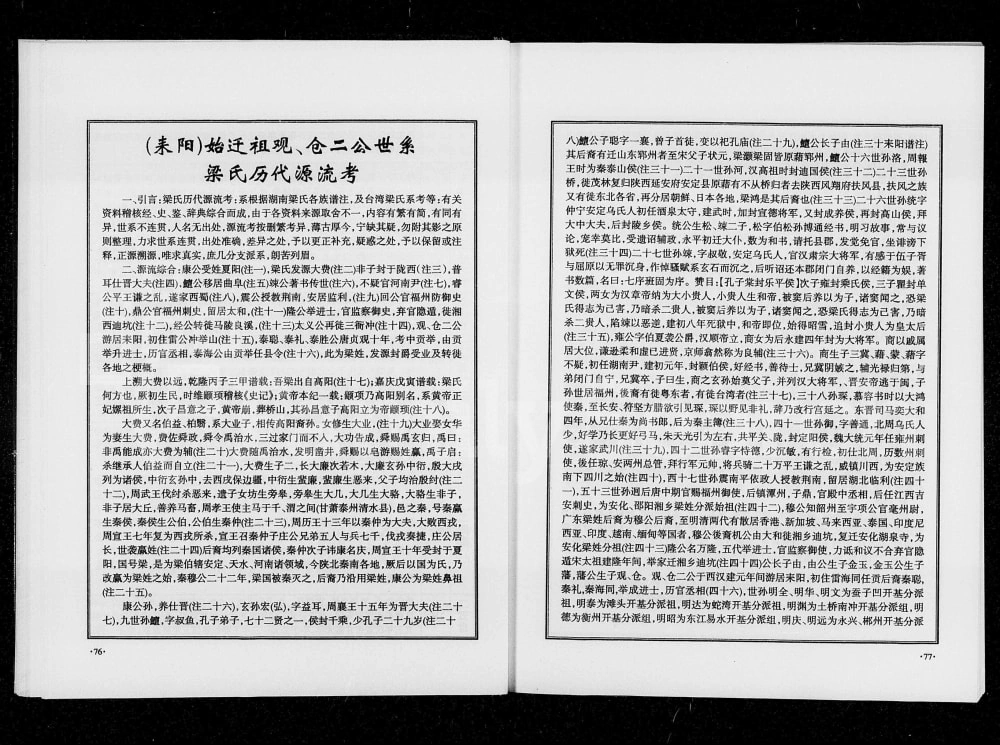 (耒阳)始迁祖观、仓二公世系
梁氏历代源流考
一、引言:梁氏历代源流考:系根据湖南梁氏各族谱注,及台湾梁氏系考等:有关
资料稽核经、史、鉴、辞典综合而成,由于各资料来源取舍不一,内容有繁有简,有同有
异,世系不连贯,人名无出处,源流考按删繁考异,薄古厚今,宁缺其疑,勿附其影之原
则整理,力求世系连贯,出处准确,差异之处,予以更正补充,疑惑之处,予以保留或注
释,正源溯源,唯求真实,庶几分支派系,朗苦列眉。
二、源流综合:康公受姓夏阳(注一),梁氏发源大费(注二)非子封于陇西(注三),普
耳仕晋大夫(注四),鳣公移居曲阜(注五)竦公著书传世(注六),不疑官河南尹(注七),睿
公平王谦之乱,遂家西蜀(注八),震公授教荆南,安居监利,(注九)回公官福州防御史
(注十),鼎公官福州刺史,留居太和,(注十一)隆公举进士,官监察御史,弃官隐遁,徙湘
西迪坑(注十二),经公转徙马陵良溪,(注十三)太义公再徙三衢冲(注十四),观、仓二公
游居耒阳,初住雷公冲举山(注十五),泰聪、泰礼、泰胜公唐贞观十年,考中贡举,由贡
举升进士,历官丞相,泰海公由贡举任县令(注十六),此为梁姓,发源封爵受业及转徙
各地之梗概。
上溯大费以远,乾隆丙子三甲谱载:吾梁出自高阳(注十七);嘉庆戊寅谱载:梁氏
何方也,厥初生民,时维颛顼稽核《史记》;黄帝本纪一载:颛顼乃高阳别名,系黄帝正
妃嫘祖所生,次子昌意之子,黄帝崩,葬桥山,其孙昌意子高阳立为帝颛顼(注十八)。
大费又名伯益、柏翳,系大业子,相传高阳裔孙。女修生大业,(注十九)大业娶女华
为妻生大费,费佐舜政,舜令禹治水,三过家门而不入,大功告成,舜赐禹玄归,禹曰:
非禹能成亦大费为辅(注二十)大费随禹治水,发明凿井,舜赐以皂游赐姓嬴,禹子启:
杀继承人伯益而自立(注二十一),大费生子二,长大廉次若木,大廉玄孙中衍,殷大戊
列为诸侯,中衍玄孙中,去西戌保边疆,中衍生蜚廉,蜚廉生恶来,父子均治殷纣(注二
十二),周武王伐纣杀恶来,遗子女坊生旁皋,旁皋生大几,大几生大骆,大骆生非子,
非子居大丘,善养马畜,周孝王使主马于千、渭之间(甘萧泰州清水县),邑之秦,号秦嬴
生秦侯,秦侯生公伯,公伯生秦仲(注二十三),周历王十三年以秦仲为大夫,大败西戎,
周宣王七年复为西戎所杀,宣王召秦仲子庄公兄弟五人与兵七千,伐戎奏捷,庄公居
长,世袭嬴姓(注二十四)后裔均列秦国诸侯,秦仲次子讳康名庆,周宣王十年受封于夏
阳,国号梁,是为梁伯辖安定、天水、河南诸领域,今陕北秦南各地,厥后以国为氏,乃
改嬴为梁姓之始,秦穆公二十二年,梁国被秦灭之,后裔乃沿用梁姓,康公为梁姓鼻祖
(注二十五)。
康公孙,养仕晋(注二十六),玄孙宏(弘),字益耳,周襄王十五年为晋大夫(注二十
七),九世孙鳣,字叔鱼,孔子弟子,七十二贤之一,侯封千乘,少孔子二十九岁(注二十
·76·
八)鳣公子聪字一襄,曾子首徒,变以祀孔庙(注二十九),鳣公长子由(注三十耒阳谱注)
其后裔有迁山东郓州者至宋父子状元,梁灏梁固皆原藉郓州,鳣公十六世孙洛,周赧
王时为秦泰山侯(注三十一)二十一世孙河,汉高祖时封迪国侯(注三十二)二十三世孙
桥,徙茂林复归陕西延安府安定县原藉有不从桥归者去陕西凤翔府扶风县,扶风之族
又有徙东北各省,再分居朝鲜、日本各地,梁鸿是其后裔也(注三十三)二十六世孙统字
仲宁安定乌氏人初任酒泉太守,建武时,加封宣德将军,又封成养侯,再封高山侯,拜
大中大夫,后封陵乡侯。统公生松、竦二子,松字伯松孙博通经书,明习故事,常与议
论,宠幸莫比,受遗诏辅政,永平初迁大仆,数为和书,请托县郡,发觉免官,坐诽谤下
狱死(注三十四)二十七世孙竦,字叔敬,安定乌氏人,官汉肃宗大将军,有感于伍子胥
与屈原以无罪沉身,作悼骚赋系玄石而沉之,后听诏还本郡闭门自养,以经籍为娱,著
书数篇,名曰:七序班固为序。赞曰:【孔子棠封乐平侯】次子雍封乘氏侯,三子瞿封单
文侯,两女为汉章帝纳为大小贵人,小贵人生和帝,被窦后养以为子,诸窦闻之,恐梁
氏得志为己害,乃暗杀二贵人,被窦后养以为子,诸窦闻之,恐梁氏得志为己害,乃暗
杀二贵人,陷竦以恶逆,建初八年死狱中,和帝即位,始得昭雪,追封小贵人为皇太后
(注三十五),雍公字伯夏袭公爵,汉顺帝立,商女为后永建四年封为大将军。商以戚属
居大位,谦逊柔和虚己进贤,京师翕然称为良辅(注三十六)。商生子三冀、藉、蒙、藉字
不疑,初任湖南尹,建初元年,封颖伯侯,好经书,善待士,兄冀阴嫉之,辅光禄归第,与
弟闭门自宁,兄冀卒,子曰生,商之玄孙始莫父子,并列汉大将军,晋安帝逃于闽,子
孙世居福州,後裔有徙粤东者,有徙台湾者(注三十七),三十八孙琛,慕容书时以大鸿
使秦,至长安、符坚方腊欲引见琛,琛以野见非礼,辞乃改行宫廷之。东晋司马奕大和
四年,从兄仕秦为尚书郎,后为秦主簿(注三十八),四十一世孙御,字善通,北周乌氏人
少,好学乃长更好弓马,朱天光引为左右,共平关、陇,封定阳侯,魏大统元年任雍州刺
使,遂家武川(注三十九),四十二世孙睿字恃德,少沉敏,有行检,初仕北周,历数州刺
使,後任琼、安两州总管,拜行军元帅,将兵骑二十万平王谦之乱,威镇川西,为安定族
南下四川之始(注四十),西十七世孙震南平依政人授教荆南,留居湖北临利(注四十
一),五十三世孙迥后唐中期官赐福州御使,后镇潭州,子鼎,官殿中丞相,后任江西吉
安刺史,为安化、邵阳湘乡梁姓分派始祖(注四十二),穆公知韶州至字项公官毫州尉,
广东梁姓后裔为穆公后裔,至明清两代有散居香港、新加坡、马来西亚、泰国、印度尼
西亚、印度、越南、缅甸等国者,穆公後裔机公由大和徙湘乡迪坑,复迁安化湖泉寺,为
安化梁姓分祖(注四十三)隆公名万隆,五代举进士,官监察御使,力诋和议不合弃官隐
遁宋太祖建隆年间,举家迁湘乡迪坑(注四十四)公长子由,由公生子金玉,金玉公生子
藩,藩公生子观、仓。观、仓二公于西汉建元年间游居耒阳,初住雷海同任贡后裔秦聪,
秦礼,秦海同,举成进士,历官丞相(四十六),世孙明全、明华、明文为蚕子凹开基分派
祖,明泰为滩头开基分派祖,明达为蛇湾开基分派祖,明渊为土桥南冲开基分派祖,明
德为衡州开基分派组,明昭为东江易水开基分派组,明庆、明远为永兴、郴州开基分派
·77·